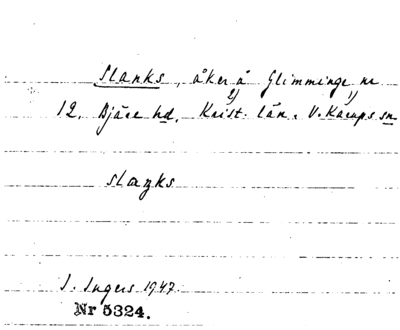 Slanks, åker å Glimminge nr
12. Bjäre hd, Krist. län. V. Karups sn
2) 1)
slaŋks
I. Ingers 1947.
Nr 5324.